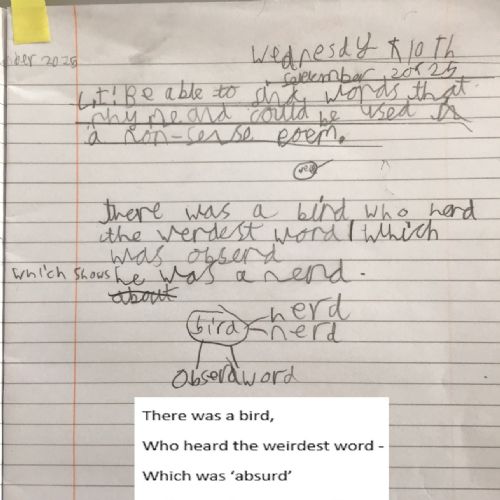 ber 2025
Wednesdy 10th
September 2025
L.I! Be able to find words that
rhyme and could be used in
a non-sense poem.
there was a bird who herd
the verdest word which
was obserd
which shows he was a nerd.
about
herd
bird
nerd
Obserd word
There was a bird,
Who heard the weirdest word -
Which was ‘absurd’